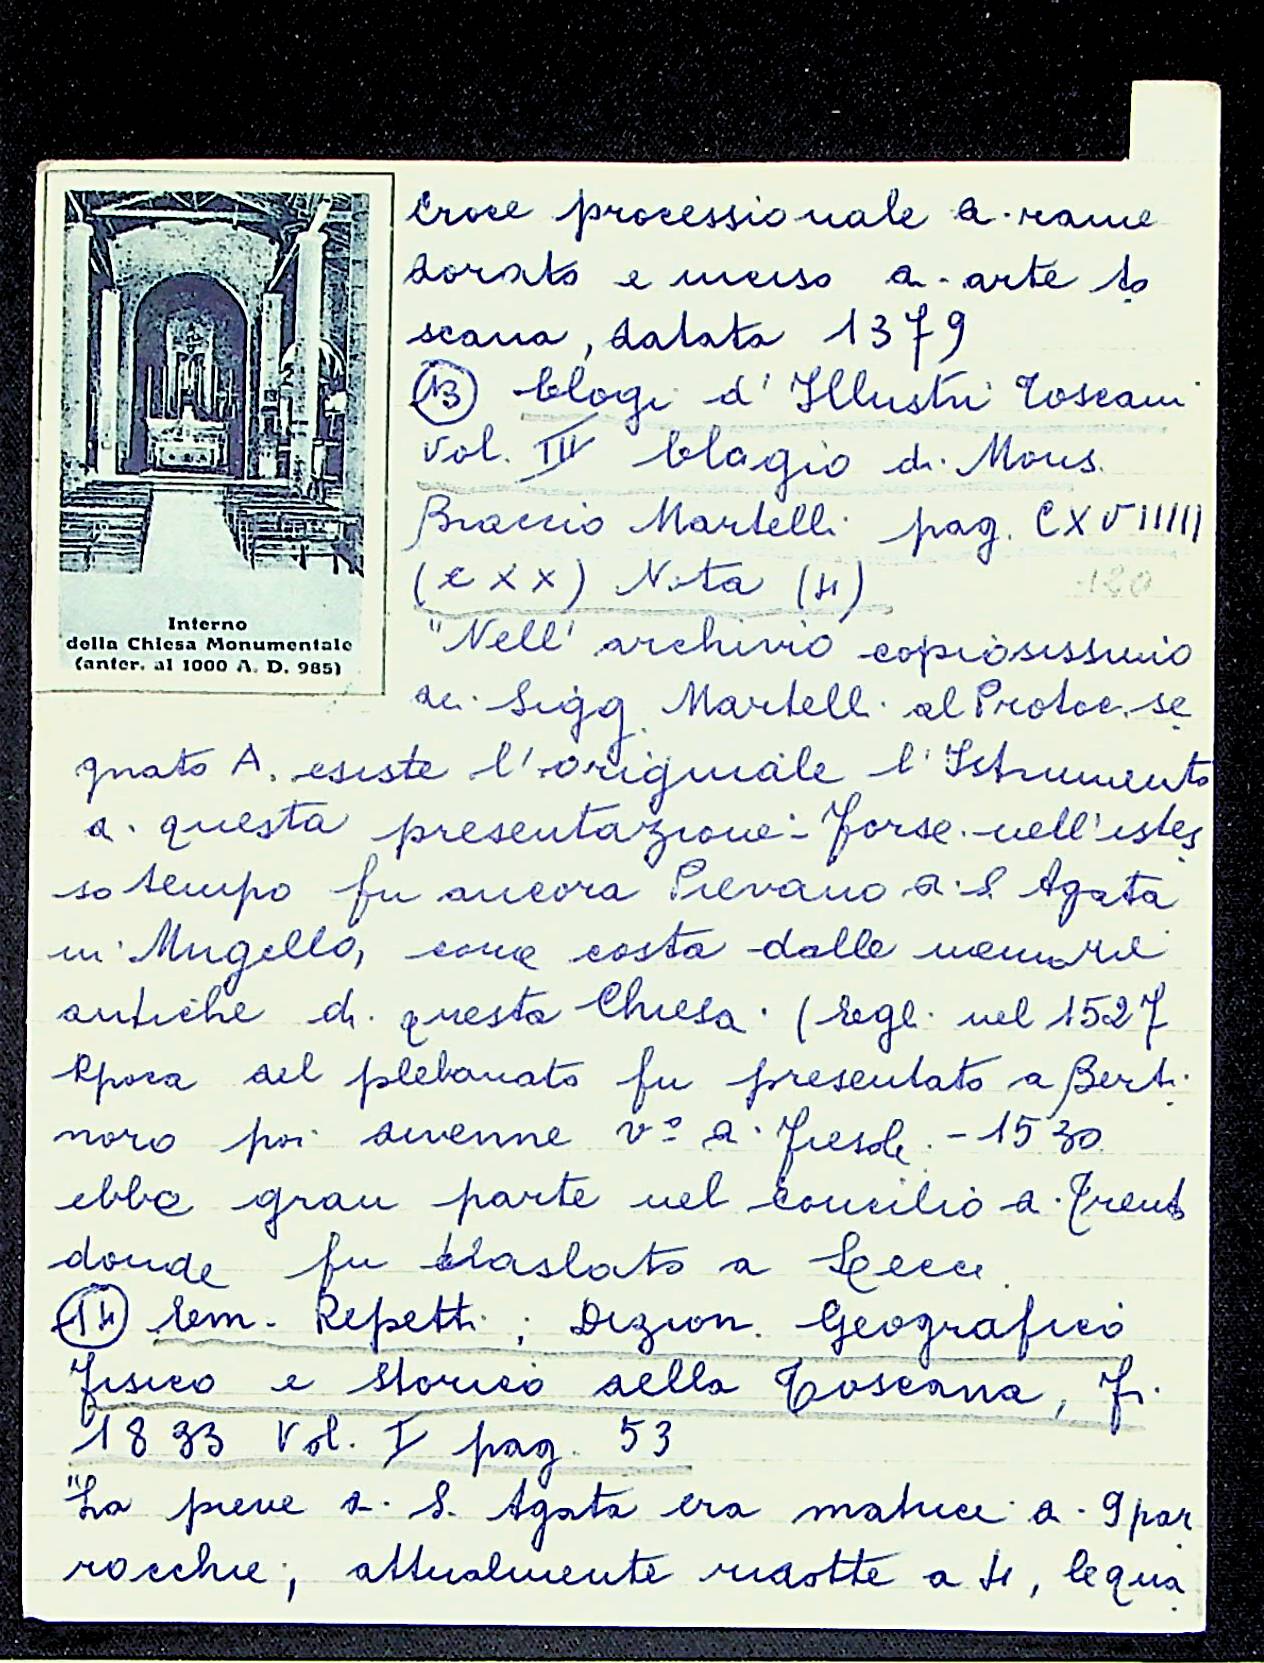 Croce processionale di rame
dorato e inciso di arte to
scana, datata 1379
(13) Elogi d'Illustri Toscani
vol. III Elogio di Mons.
Braccio Martelli pag. CXVIIIII
(CXX) Nota (4)
120
"Nell'archivio copiosissimo
dei Sigg. Martelli al Protoc. se
gnato A. esiste l'originale l'Istrumento
di questa presentazione: Forse nell'istes
so tempo fu ancora Pievano di S. Agata
in Mugello, come costa dalle memorie
antiche di questa Chiesa. (Egli nel 1527
epoca del plebanato fu presentato a Berti
noro poi divenne vº di Fiesole - 1530
ebbe gran parte nel Concilio di Trento
donde fu traslato a Lecce.
(14) Em. Repetti; Dizion. Geografico
Fisico e Storico della Toscana, Fi.
1833 Vol. I pag. 53
"La pieve di S. Agata era matrice di 9 par
rocchie; attualmente ridotte a 4, le qua
Interno
della Chiesa Monumentale
(anter. al 1000 A. D. 985)